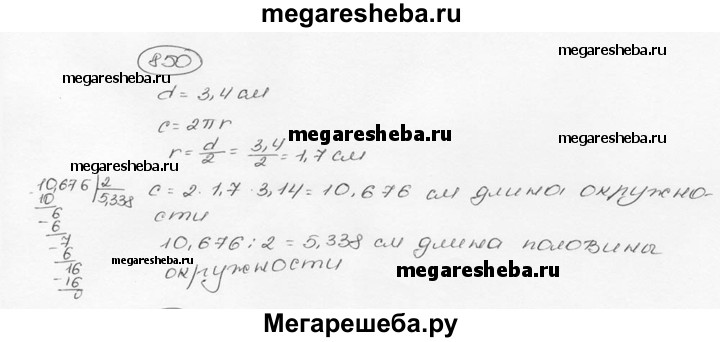 megaresheba.ru
850
megaresheba.ru
megaresheba.ru
d = 3,4 см
c = 2πr
megaresheba.ru
r = d/2 = 3,4/2 = 1,7 см
10,676 | 2
10 5,338
- 6
6
- 7
6
- 16
16
0
c = 2 · 1,7 · 3,14 = 10,676 см длина окружно-
сти
megaresheba.ru
10,676 : 2 = 5,338 см длина половина
окружности
megaresheba.ru
megaresheba.ru
Мегарешеба.ру